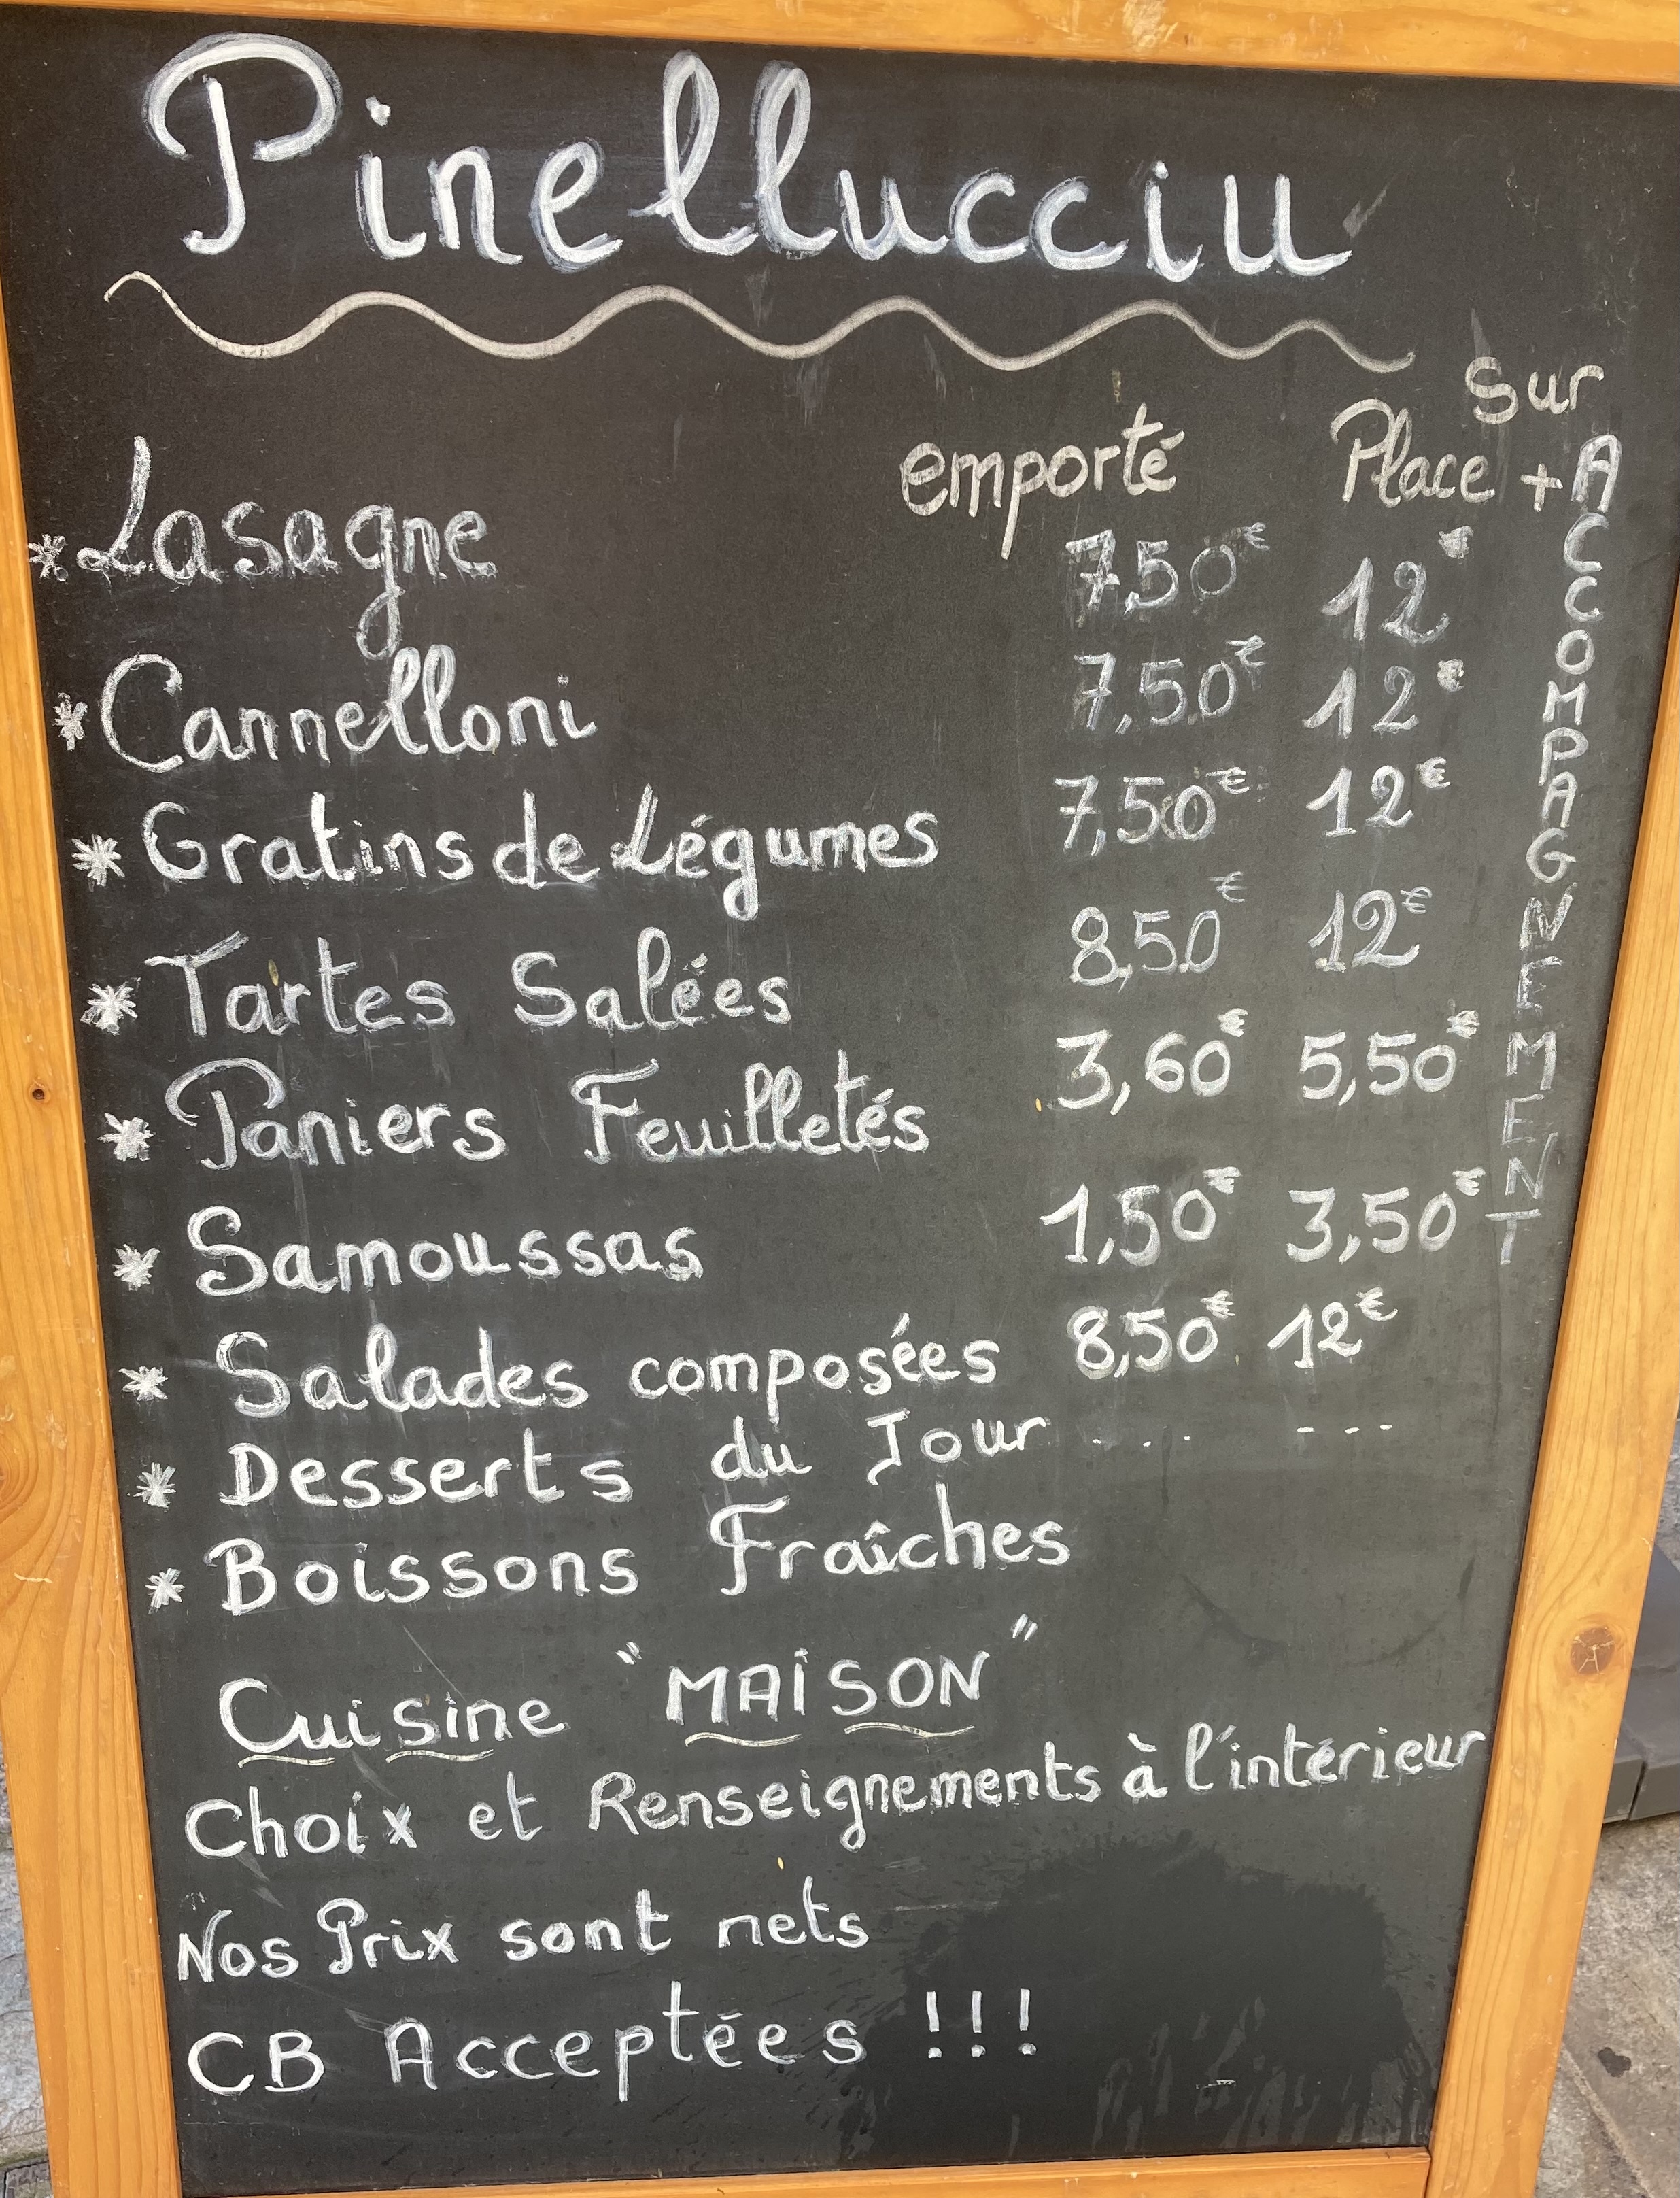 Pinellucciu
emporté Sur Place + ACCOMPAGNEMENT
* Lasagne 7,50€ 12€
* Cannelloni 7,50€ 12€
* Gratins de Légumes 7,50€ 12€
* Tartes Salées 8,50€ 12€
* Paniers Feuilletés 3,60€ 5,50€
* Samoussas 1,50€ 3,50€
* Salades composées 8,50€ 12€
* Desserts du Jour ... ---
* Boissons Fraîches
Cuisine "MAISON"
Choix et Renseignements à l'intérieur
Nos Prix sont nets
CB Acceptées !!!